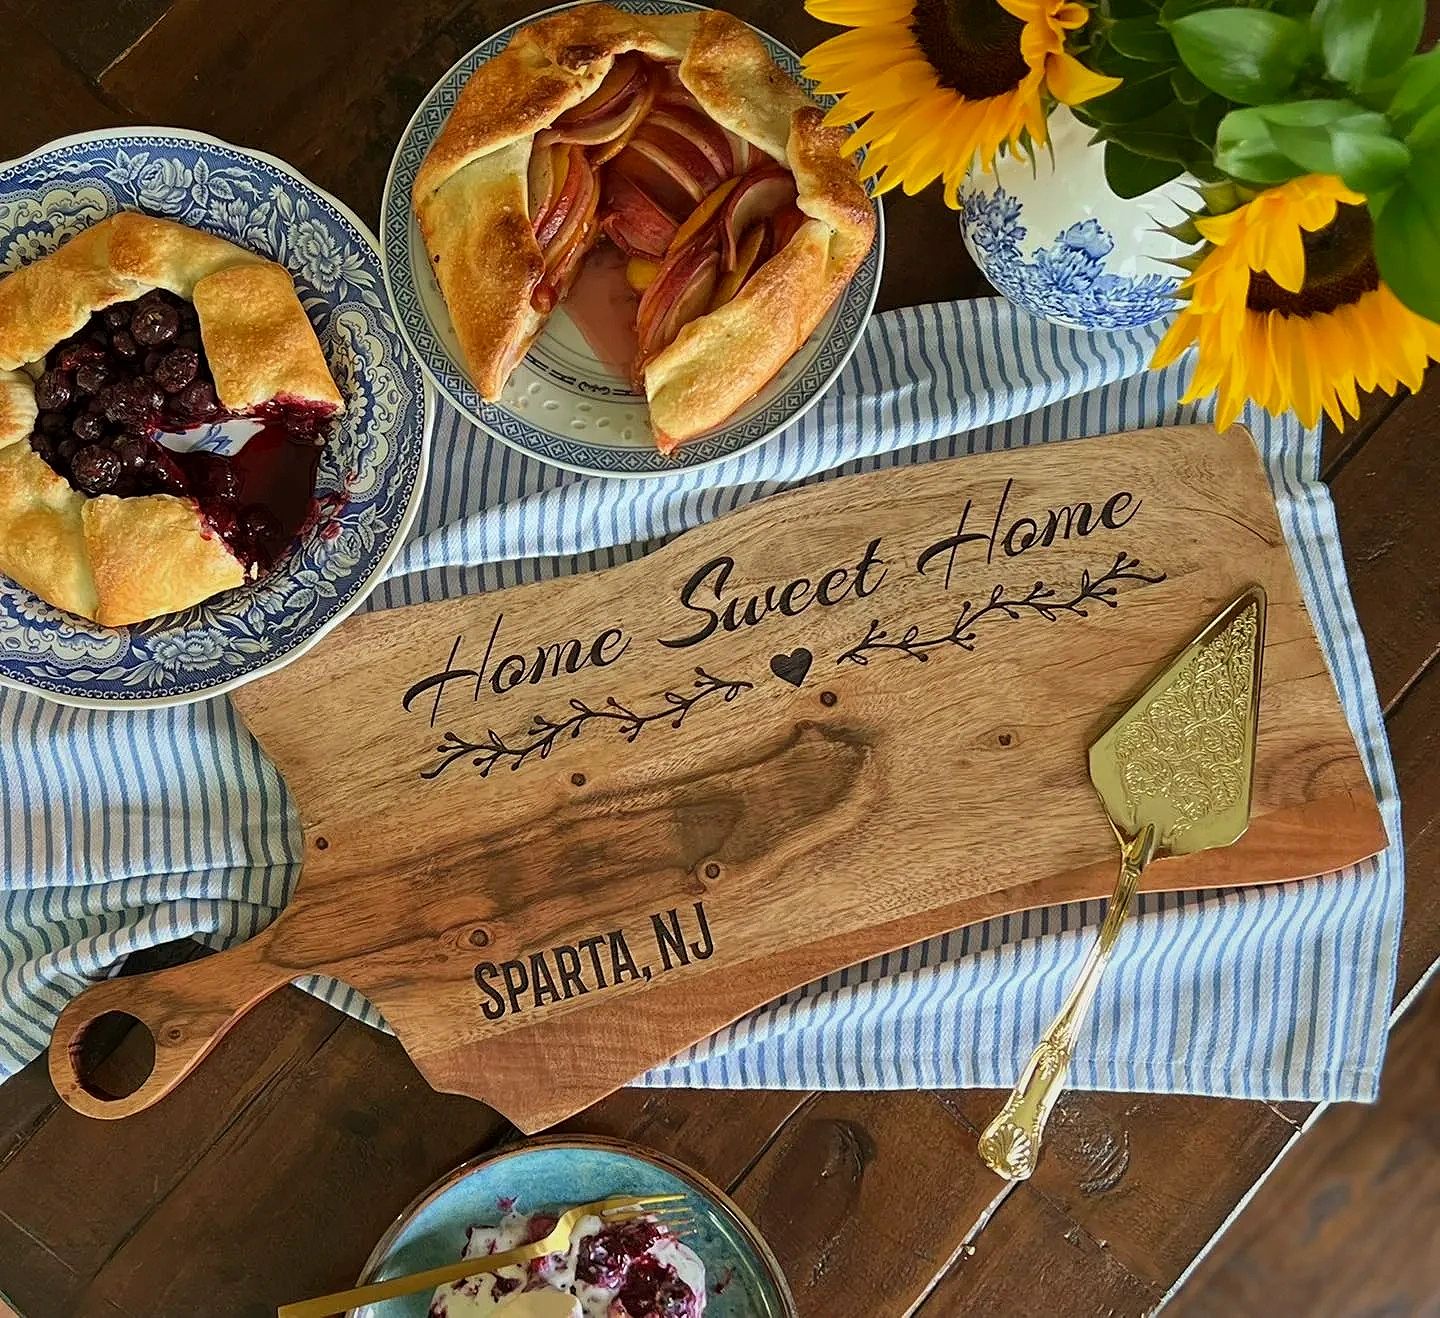 Home Sweet Home
SPARTA, NJ